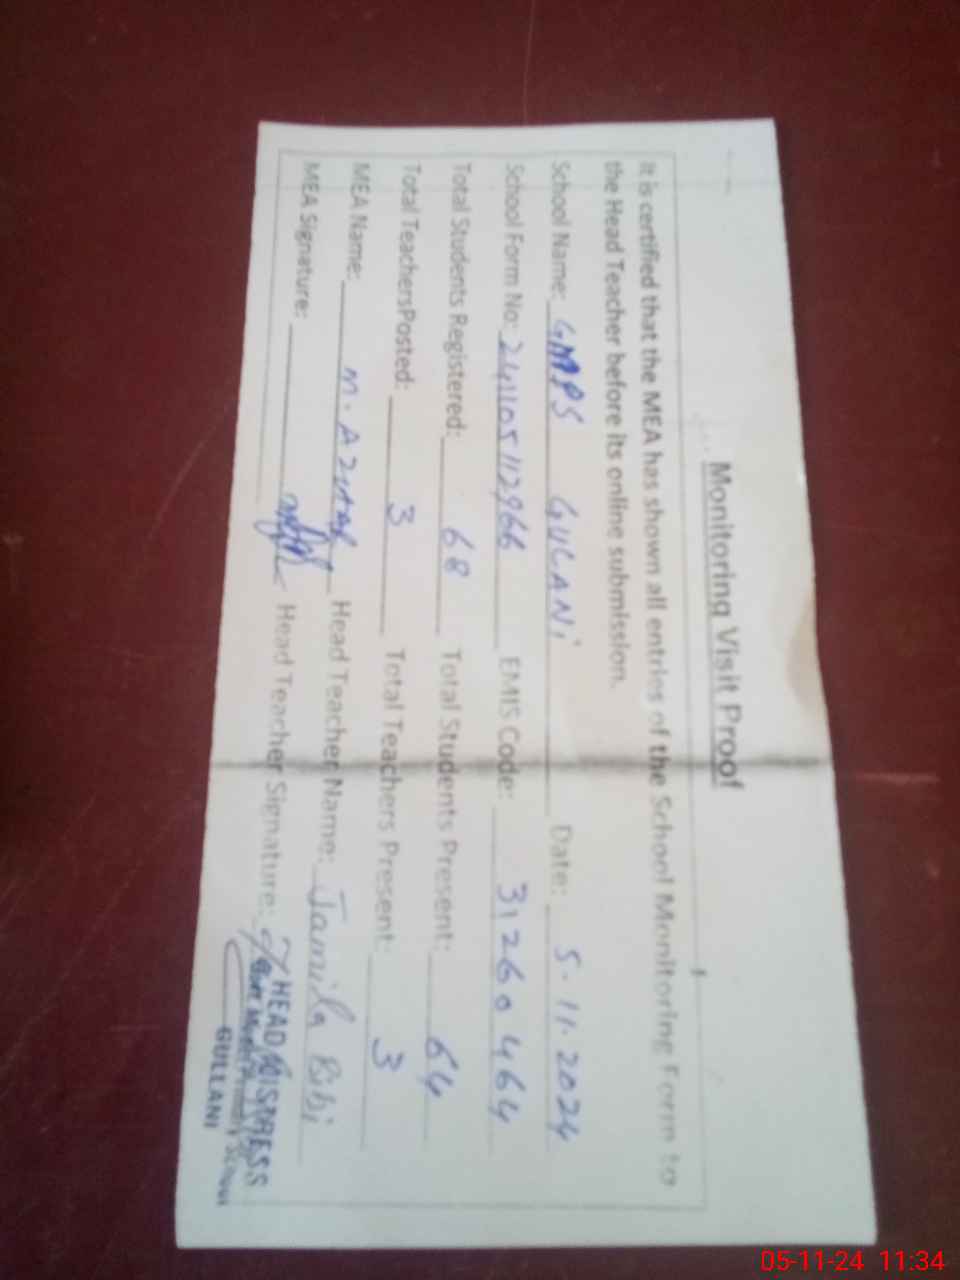 Monitoring Visit Proof
It is certified that the MEA has shown all entries of the School Monitoring Form to
the Head Teacher before its online submission.
School Name: GMPS GULANi Date: 5.11.2024
School Form No: 241105112966 EMIS Code: 31260464
Total Students Registered: 68 Total Students Present: 64
Total TeachersPosted: 3 Total Teachers Present: 3
MEA Name: M. Azhar Head Teacher Name: Jamila Bibi
MEA Signature: Head Teacher Signature:
HEAD MISTRESS
Govt Model Primary School
GULLANI
05-11-24 11:34